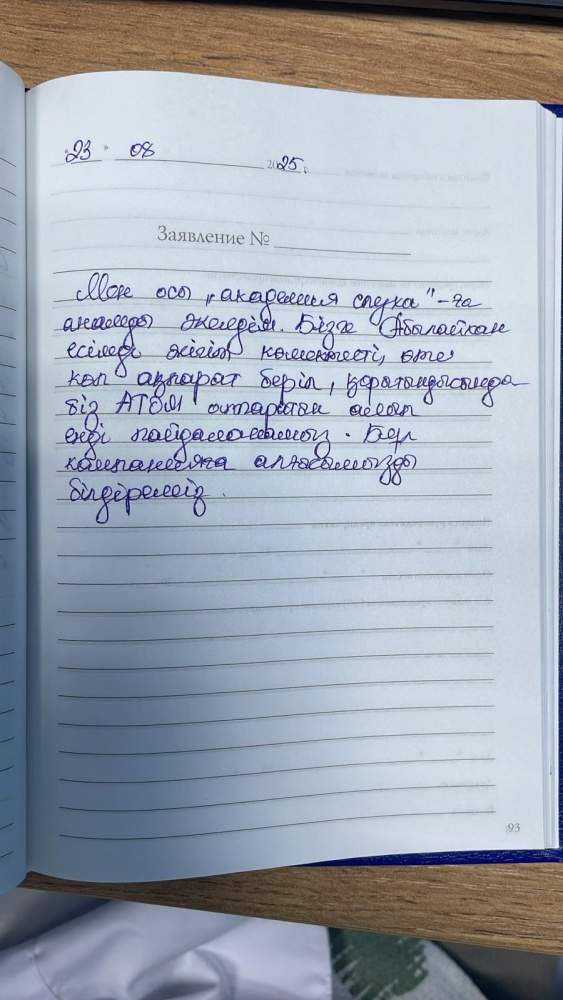 "23" 08 2025 г.
Заявление №
Мен осы "академия слуха"-ға
анамды әкелдім. Бізге Абылайхан
есімді жігіт көмектесті, өте
көп ақпарат беріп, қорытындысында
біз АТОМ аппаратын алып
енді пайдаланамыз. Бұл
компанияға алғысымызды
білдіреміз.
93